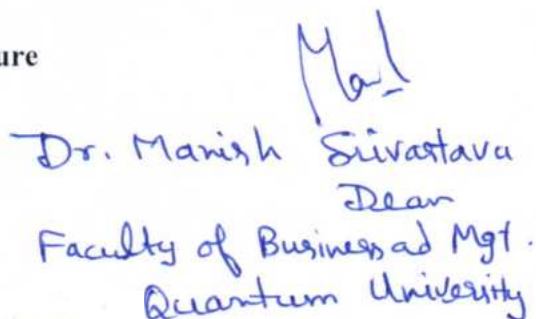 ure
Dr. Manish Srivastava
Dean
Faculty of Business ad Mgt.
Quantum University